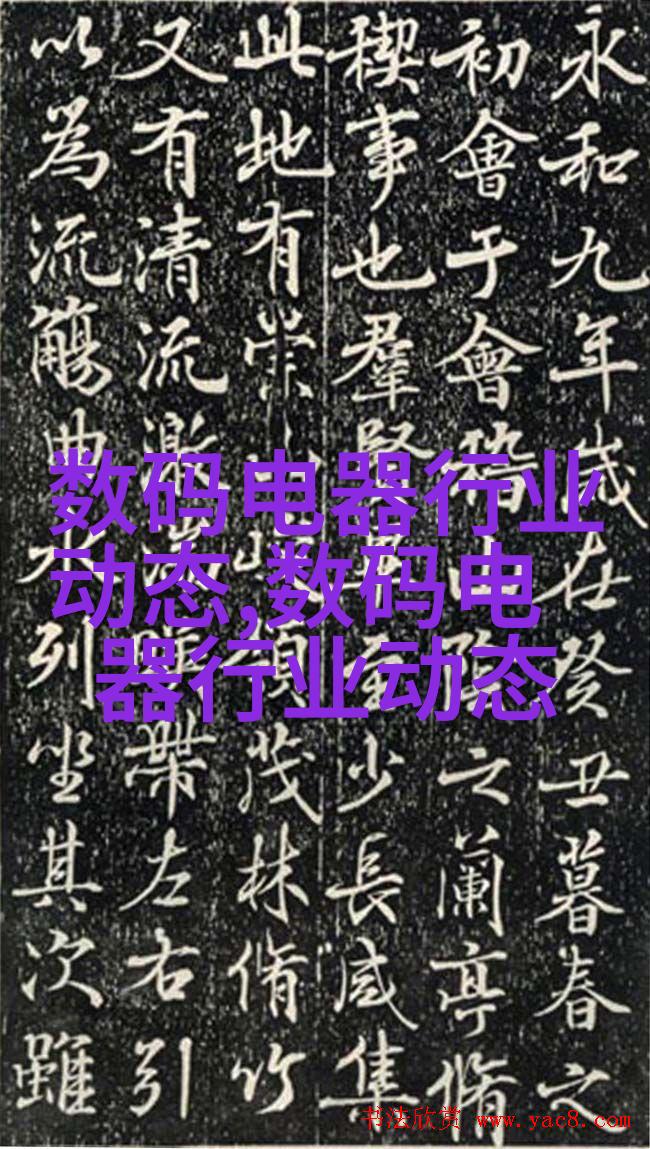 永和九年歲在癸丑暮春之
初會于會稽山陰之蘭亭脩
禊事也羣賢畢至少長咸集
此地有崇山峻領茂林脩竹
又有清流激湍暎帶左右引
以為流觴曲水列坐其次雖
数码电器行业
动态,数码电
器行业动态
书法欣赏 www.yac8.com